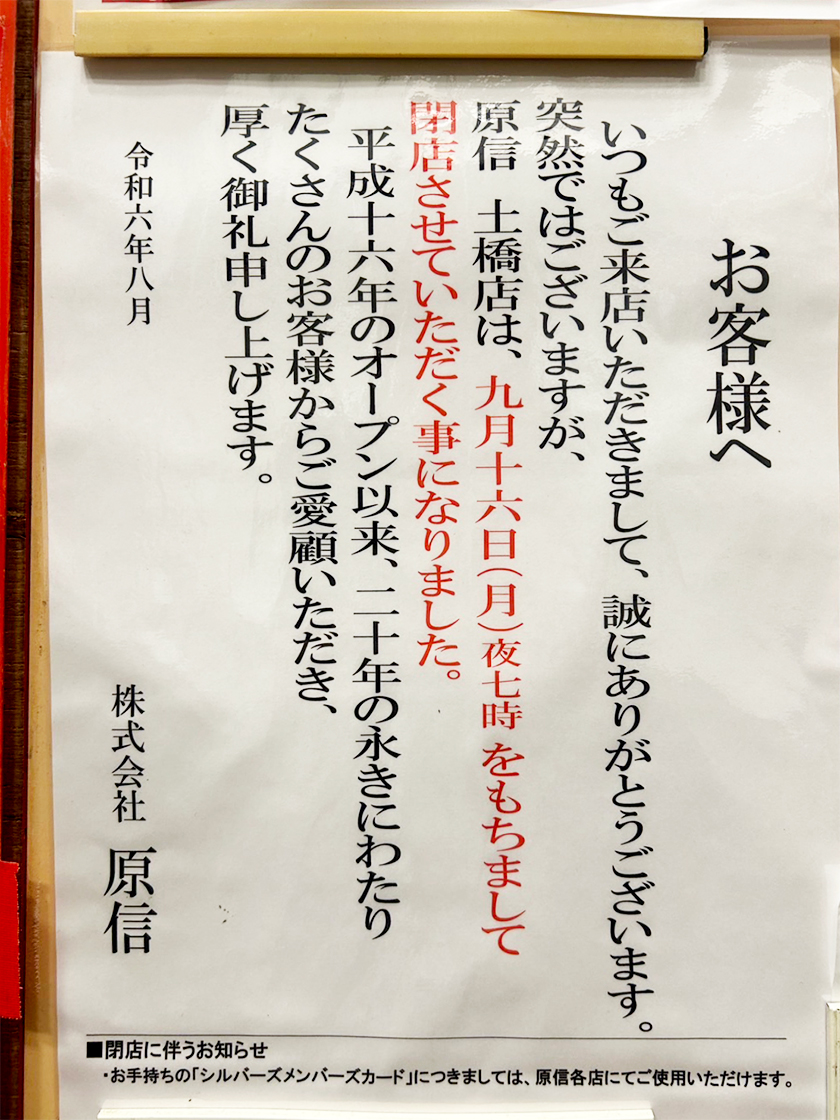 お客様へ
いつもご来店いただきまして、誠にありがとうございます。
突然ではございますが、
原信　土橋店は、九月十六日（月）夜七時をもちまして
閉店させていただく事になりました。
平成十六年のオープン以来、二十年の永きにわたり
たくさんのお客様からご愛顧いただき、
厚く御礼申し上げます。
令和六年八月
株式会社　原信
■閉店に伴うお知らせ
・お手持ちの「シルバーズメンバーズカード」につきましては、原信各店にてご使用いただけます。